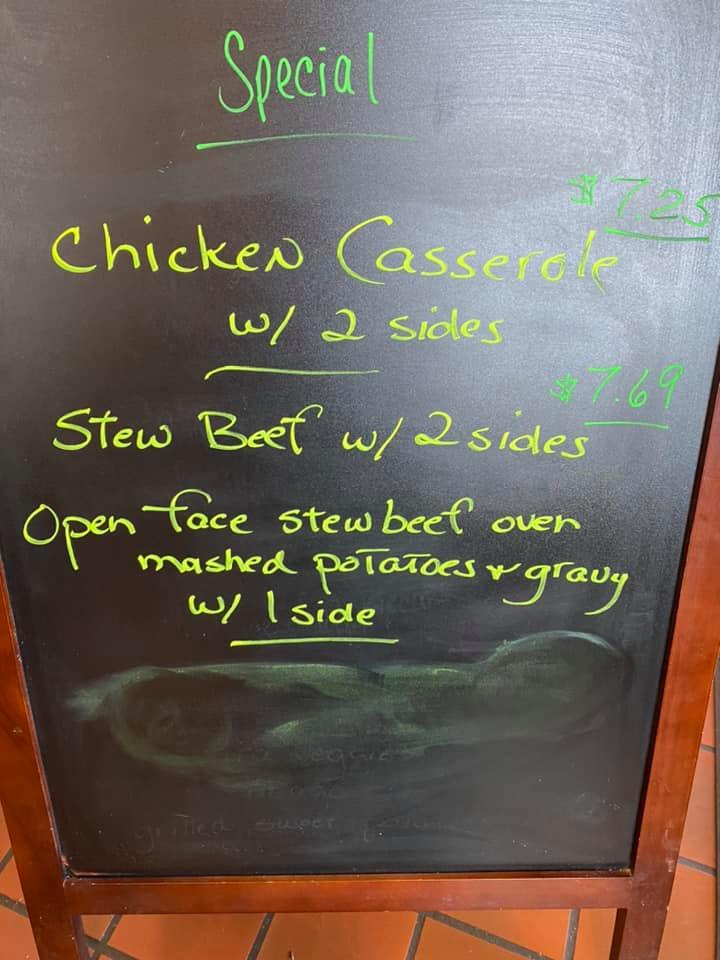 Special
$7.25
Chicken Casserole
w/ 2 sides
$7.69
Stew Beef w/ 2 sides
Open face stew beef over
mashed potatoes & gravy
w/ 1 side
grilled sweet